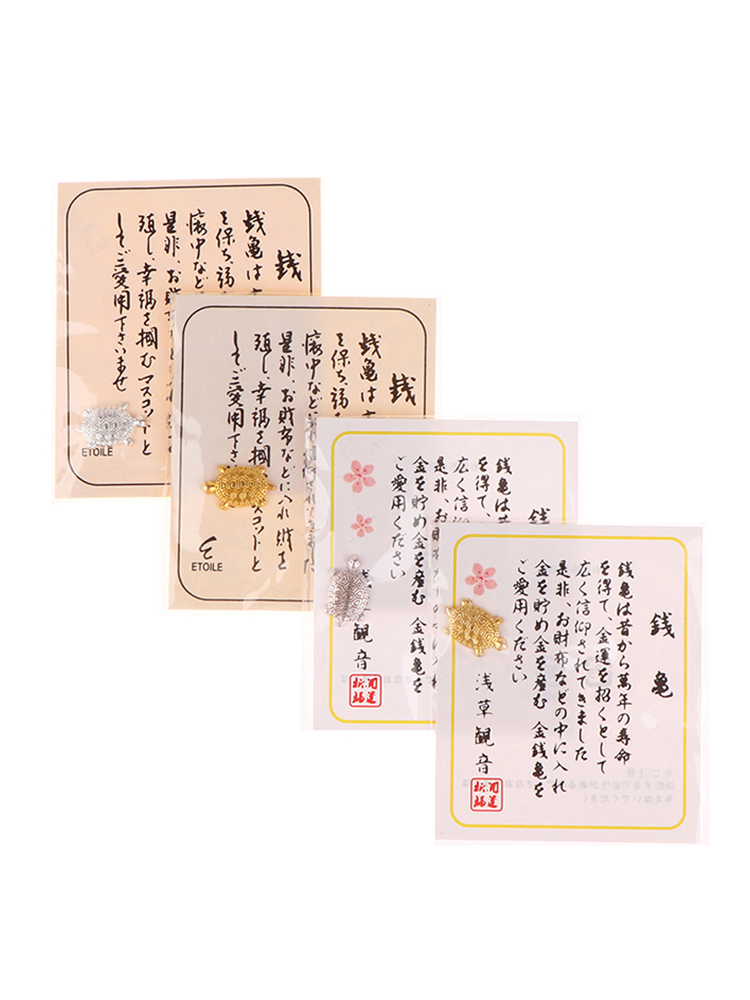 銭
銭亀は
を保ち、福
懐中など
是非、お財
殖し、幸福を掴むマスコットと
してご愛用下さいませ
ETOILE
銭
銭亀は
を保ち、福
懐中など
是非、お財布などに入れ 財を
殖し、幸福を掴
スコットと
してご愛用下さ
ETOILE
銭
銭亀は昔
を得て、
広く信仰
是非、お財
金を貯め金を産む 金銭亀を
ご愛用ください
草観音
開運
祈福
銭亀
銭亀は昔から萬年の寿命
を得て、金運を招くとして
広く信仰されてきました
是非、お財布などの中に入れ
金を貯め金を産む 金銭亀を
ご愛用ください
浅草観音
開運
祈福